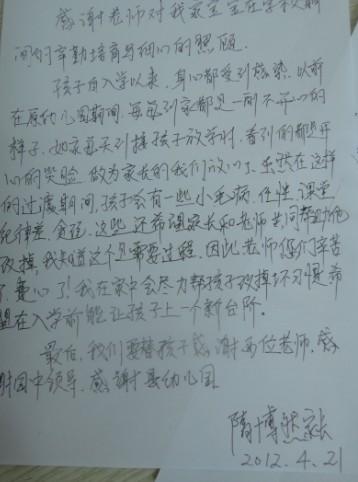 感谢老师对我家宝宝在学校期
间的辛勤培育与细心的照顾
孩子自入学以来，身心都受到感染，以前
在原幼儿园期间，每每到家都是一副不开心的
样子，如今每天到接孩子放学时，看到的都是开
心的笑脸，做为家长的我们放心了，虽然在这样
的过渡期间，孩子会有一些小毛病，任性，课堂
纪律差，贪玩，这些还希望家长和老师共同帮助他
改掉，我知道这个是需要过程，因此老师您们辛苦
了，费心了！我在家中会尽力帮孩子改掉坏习惯，希
望在入学前能让孩子上一个新台阶。
最后，我们要替孩子感谢两位老师，感
谢园中领导，感谢县幼儿园
隋博 家长
2012.4.21